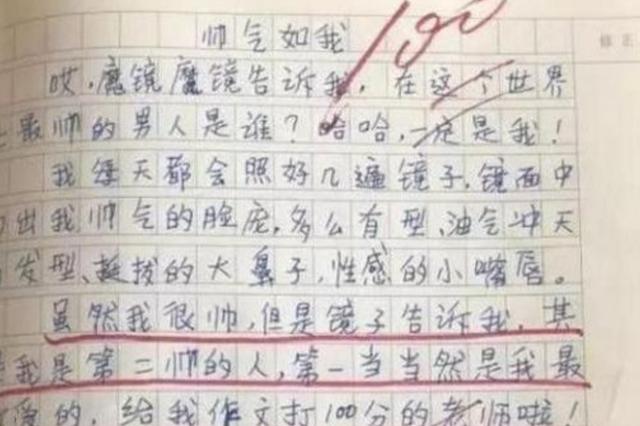 帅气如我
100
修正
哎,魔镜魔镜告诉我,在这个世界
最帅的男人是谁?哈哈,一定是我!
我每天都会照好几遍镜子,镜面中
出我帅气的脸庞,多么有型,油气冲天
发型、挺拔的大鼻子,性感的小嘴唇。
虽然我很帅,但是镜子告诉我,其
我是第二帅的人,第一当当然是我最
的,给我作文打100分的老师啦!